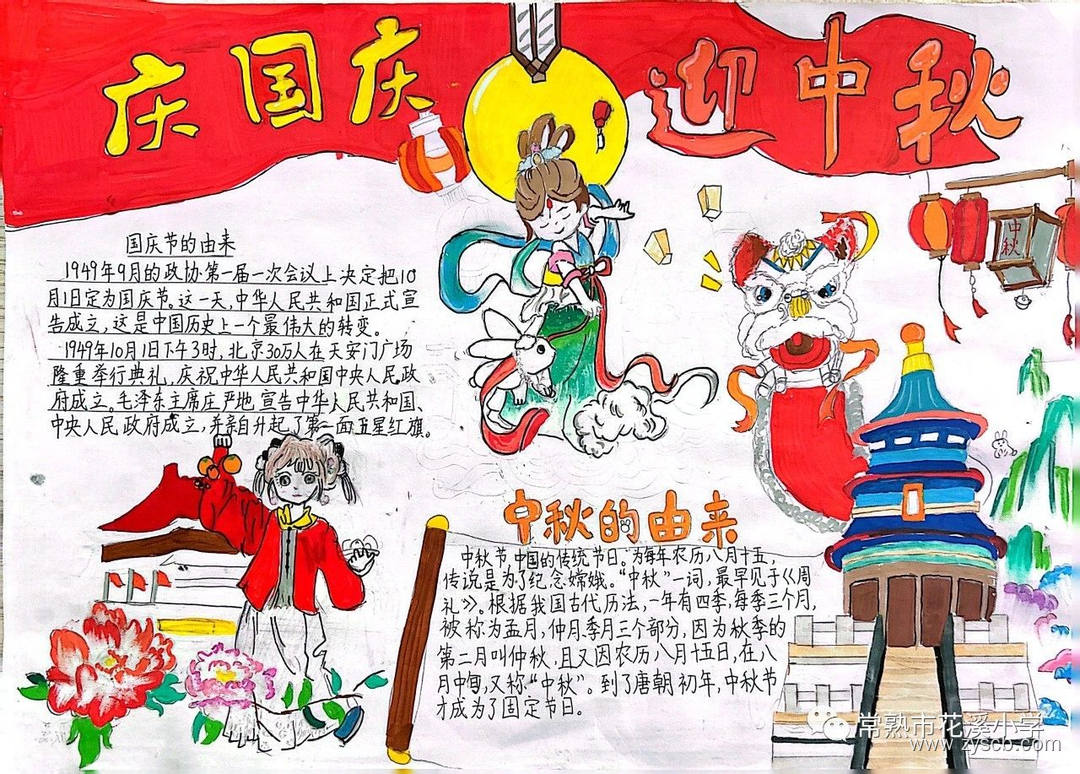 庆国庆 迎中秋
中秋
国庆节的由来
1949年9月的政协第一届一次会议上决定把10
月1日定为国庆节。这一天,中华人民共和国正式宣
告成立,这是中国历史上一个最伟大的转变。
1949年10月1日下午3时,北京30万人在天安门广场
隆重举行典礼,庆祝中华人民共和国中央人民政
府成立。毛泽东主席庄严地宣告中华人民共和国、
中央人民政府成立,并亲自升起了第一面五星红旗。
中秋的由来
中秋节,中国的传统节日。为每年农历八月十五,
传说是为了纪念嫦娥。“中秋”一词,最早见于《周
礼》。根据我国古代历法,一年有四季,每季三个月,
被称为孟月,仲月、季月三个部分,因为秋季的
第二月叫仲秋,且又因农历八月十五日,在八
月中旬,又称“中秋”。到了唐朝初年,中秋节
才成为了固定节日。
常熟市花溪小学
www.zyscb.com